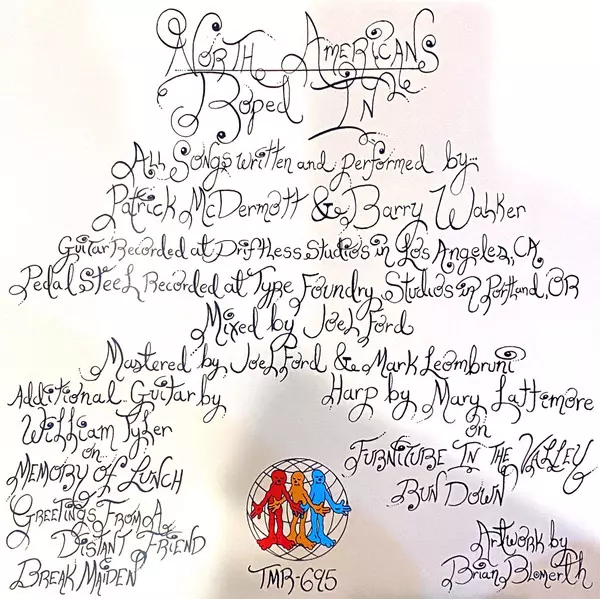 North Americans
Roped In
All Songs written and performed by...
Patrick McDermott & Barry Walker
Guitar Recorded at Driftless Studios in Los Angeles, CA
Pedal Steel Recorded at Type Foundry Studios in Portland, OR
Mixed by Joel Ford
Mastered by Joel Ford & Mark Leombruni
Additional Guitar by
William Tyler
on
Memory of Lunch
Greetings From A
Distant Friend
&
Break Maiden
Harp by Mary Lattimore
on
Furniture In The Valley
Run Down
TMR-695
Artwork by
Brian Blomerth